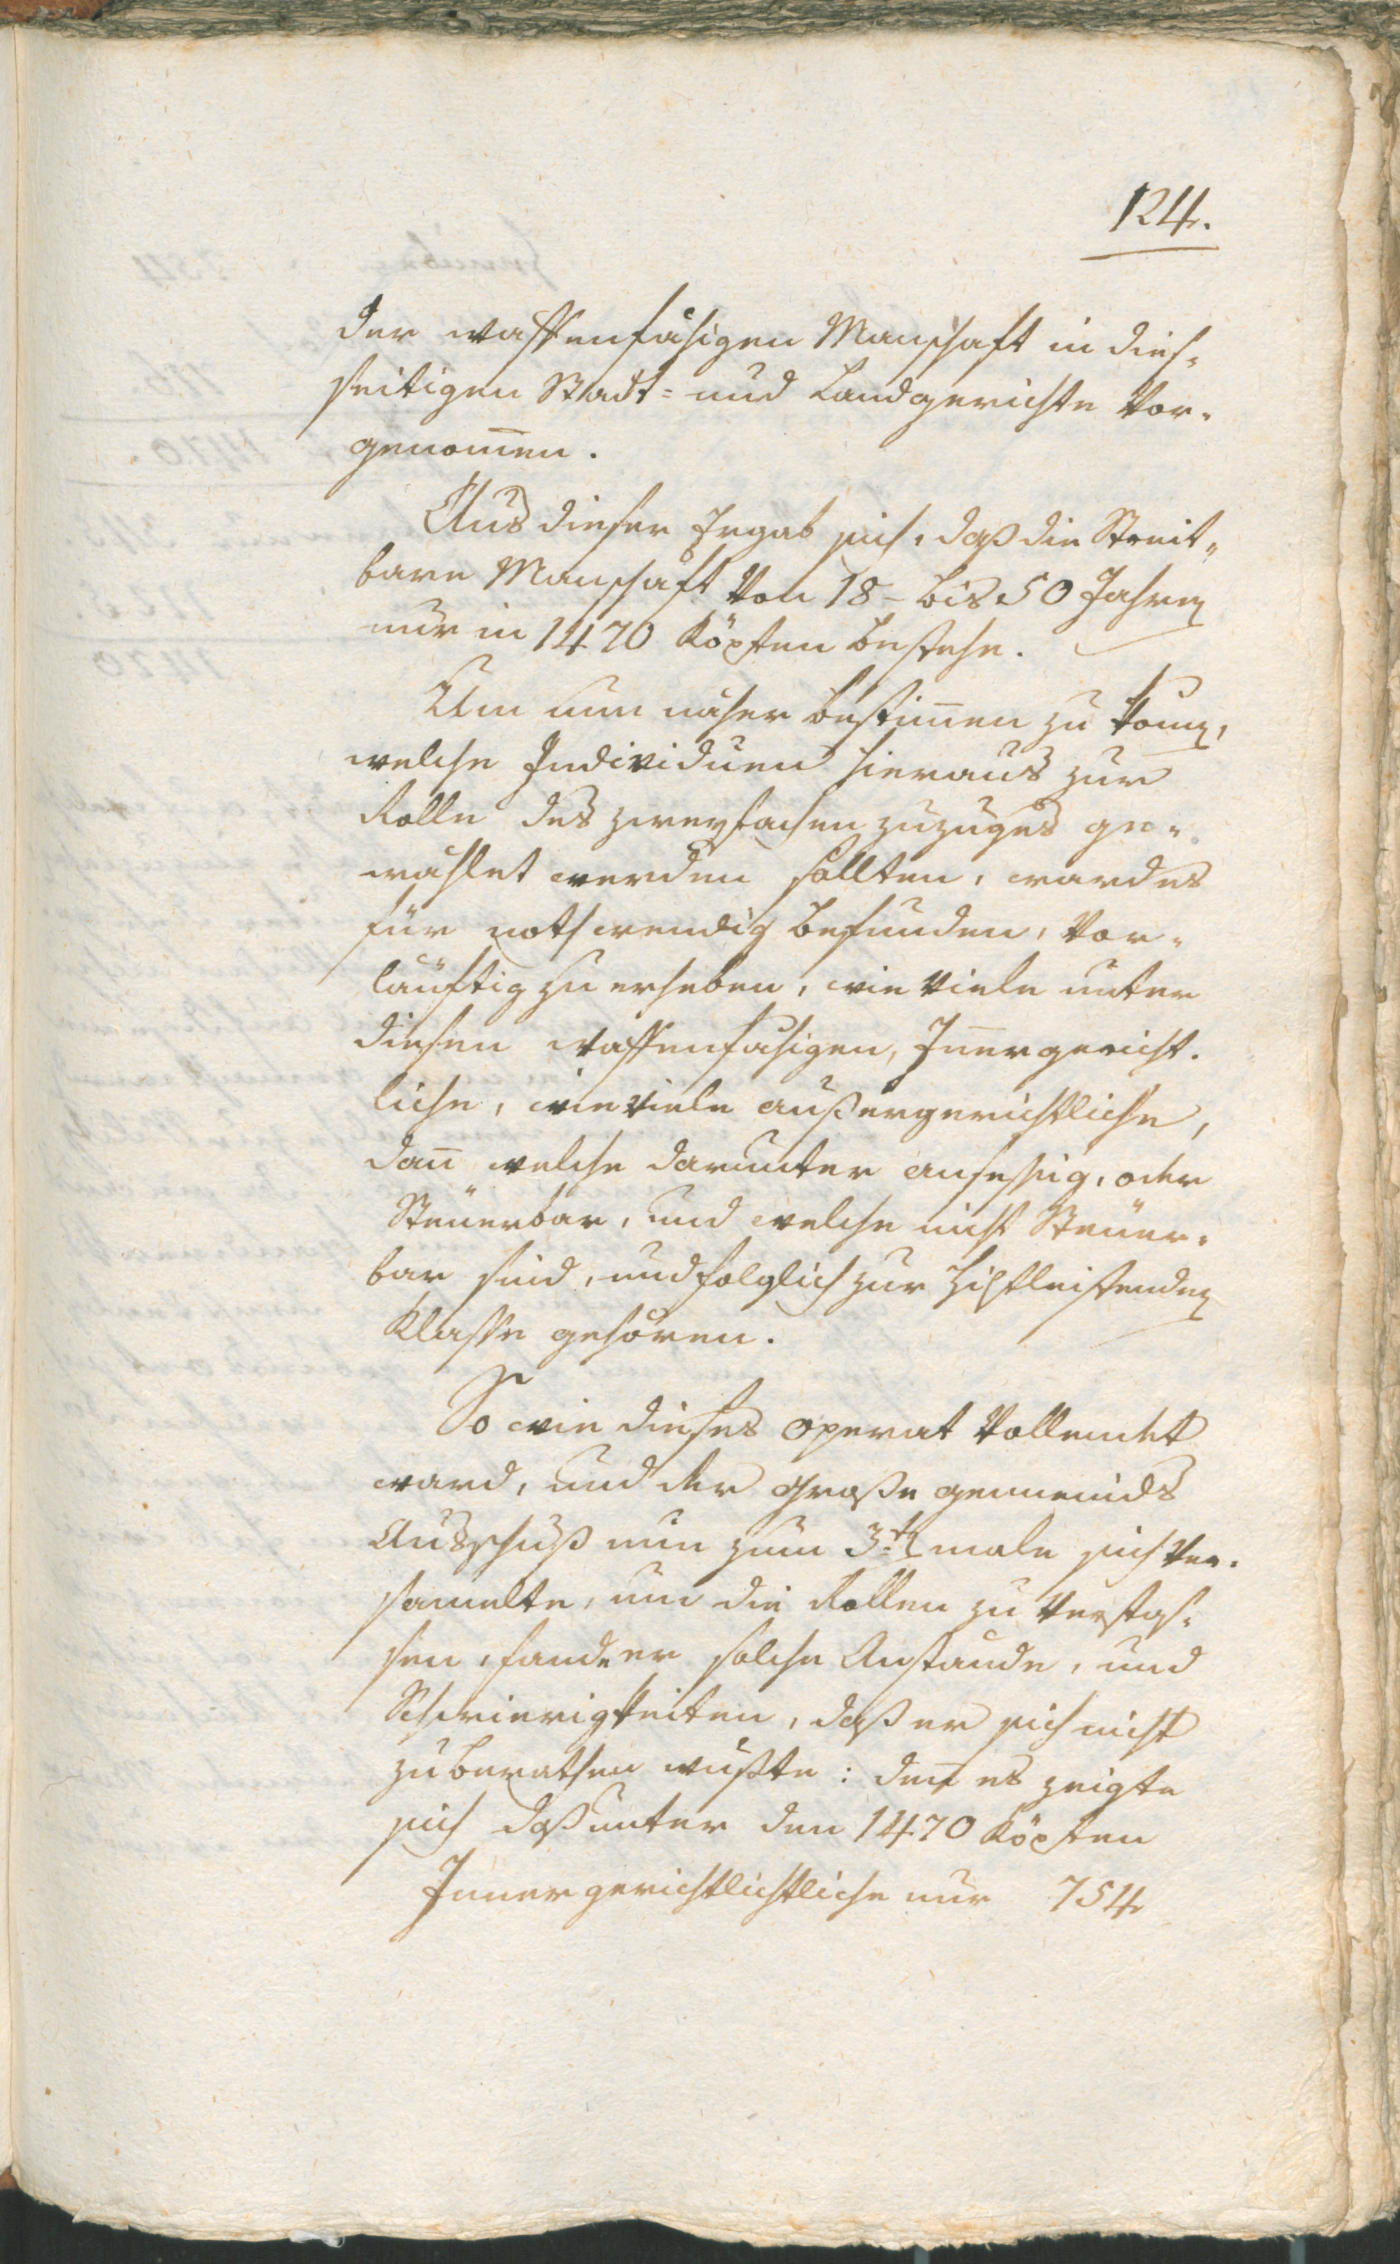 124.
der waffenfähigen Manschaft in dies-
seitigen Stadt- und Landgerichte Vor-
genom̄en.
Aus dieser Ergab sich, daß die Streit-
bare Manschaft Von 18 - bis 50 Jahren
nur in 1470 Köpfen bestehe.
Um nun näher bestim̄en zu könen,
welche Individuen hieraus zur
Rolle des zweyfachen zuzuges ge-
wählet werden sollten, ward es
für nothwendig befunden, Vor-
läuftig zu erheben, wie Viele unter
diesen Waffenfähigen, In̄ergericht-
liche, wie Viele außergerichtliche,
dan̄ welche darunter ansessig, oder
Steuerbar, und welche nicht Steuer-
bar sind, und folglich zur Hilfleistenden
Klasse gehören.
So wie dieses operat Vollendet
ward, und der Große gemeinds
Ausschuß nun zum 3ten male sich Ver-
samelte, um die Rollen zu Verfas-
sen, fande er solche Anstände, und
Schwierigkeiten, daß er sich nicht
zu berathen wußte: den̄ es zeigte
sich daß unter den 1470 Köpfen
Innergerichtlichtliche nur 754